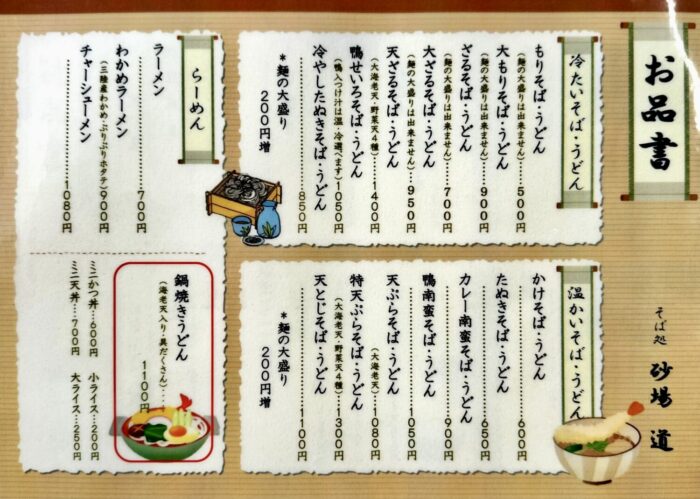 お品書
そば処 砂場 道
冷たいそば・うどん
もりそば・うどん
……500円
大もりそば・うどん
(麺の大盛りは出来ません)……900円
ざるそば・うどん
(麺の大盛りは出来ません)……700円
大ざるそば・うどん
(麺の大盛りは出来ません)……950円
天ざるそば・うどん
(大海老天・野菜天4種)……1450円
鴨せいろそば・うどん
(鴨入つけ汁は温・冷選べます)1050円
冷やしたぬきそば・うどん
……850円
*麺の大盛り
200円増
温かいそば・うどん
かけそば・うどん
……600円
たぬきそば・うどん
……650円
カレー南蛮そば・うどん
……900円
鴨南蛮そば・うどん
……1050円
天ぷらそば・うどん
(大海老天)……1080円
特天ぷらそば・うどん
(大海老天・野菜天4種)……1300円
天とじそば・うどん
……1100円
*麺の大盛り
200円増
らーめん
ラーメン
……700円
わかめラーメン
(三陸産わかめ・ぷりぷりホタテ)900円
チャーシューメン
……1080円
鍋焼きうどん
(海老天入り・具だくさん)……
1100円
ミニかつ丼…600円 小ライス…200円
ミニ天丼…700円 大ライス…250円